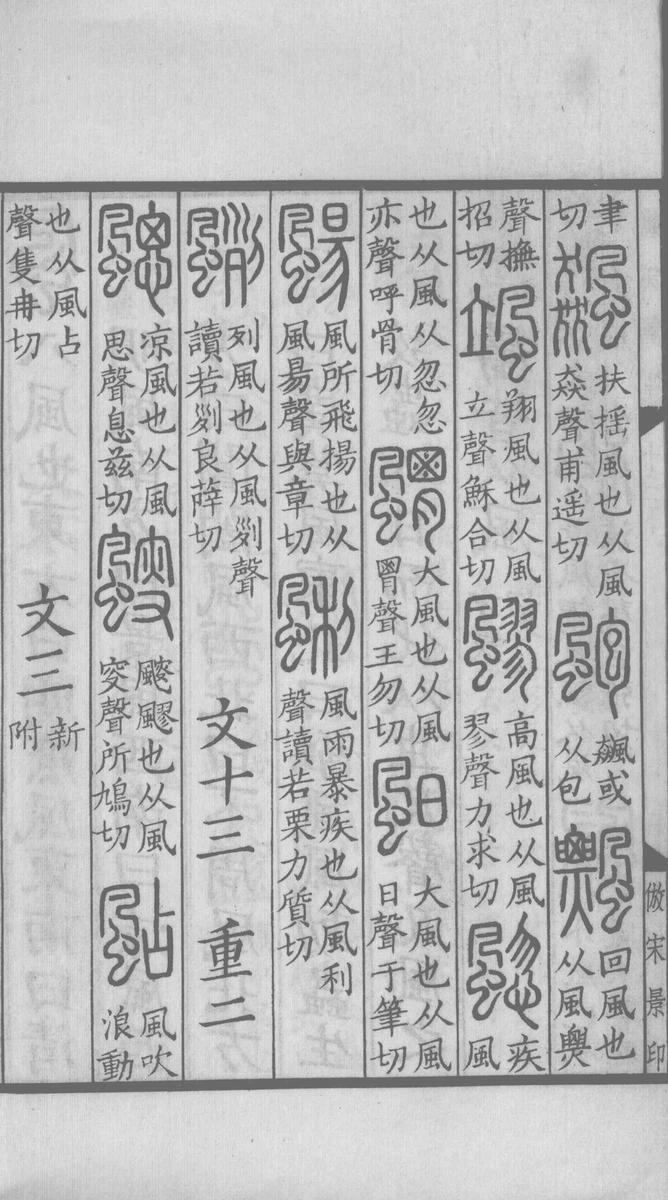 聿切飆扶摇風也从風猋聲甫遥切颮飆或从包飄回風也从風㷠
聲撫招切颯翔風也从風立聲穌合切飂高風也从風翏聲力求切䬍疾風
也从風从忽忽亦聲呼骨切䬑大風也从風胃聲王勿切䫻大風也从風日聲于筆切
颺風所飛揚也从風昜聲與章切䬆風雨暴疾也从風利聲讀若栗力質切
颲列風也从風𠛱聲讀若𠛱良薛切 文十三 重二
颸凉風也从風思聲息茲切颼颼飂也从風叜聲所鳩切颭風吹浪動
也从風占聲隻冉切 文三 新附
倣宋景印